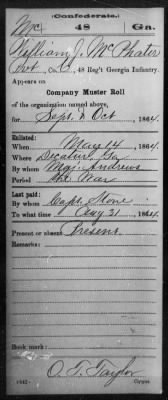 Confederate.
Mc 48 Ga.
William J. McPhator
Pvt, Co. C, 48 Reg't Georgia Infantry.
Appears on
Company Muster Roll
of the organization named above,
for Sept. & Oct, 1864.
Enlisted:
When May 14, 1864.
Where Decatur, Ga
By whom Maj. Andrews
Period the War
Last paid:
By whom Capt. Stone
To what time Aug 31, 1864.
Present or absent Present.
Remarks:
Book mark:
O. T. Taylor
(642) Copyist.